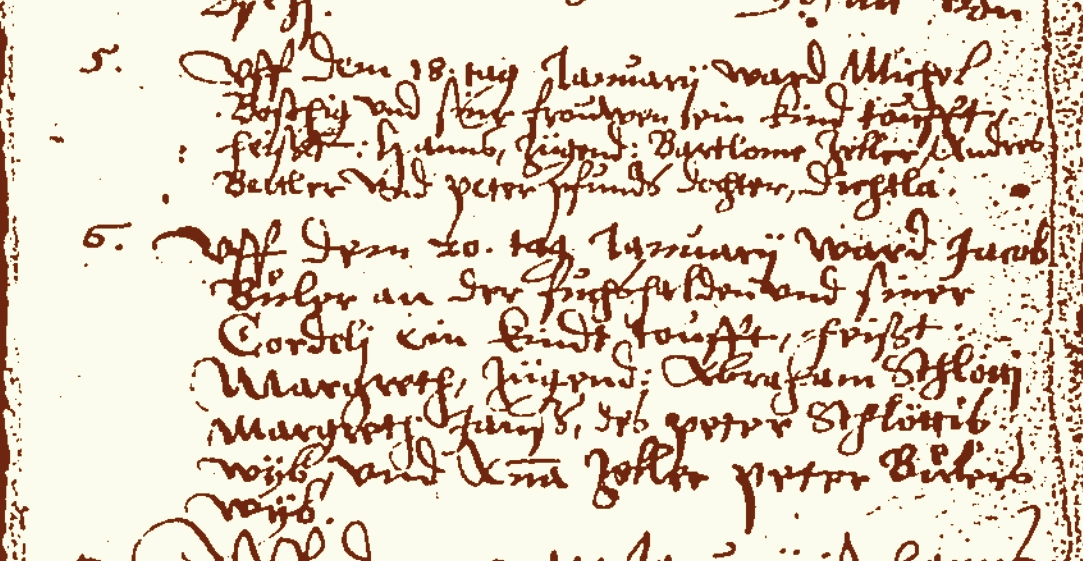 5. Uff dem 18. tag Januarij ward Michel
Boschig und siner frouwen ein kind toufft,
heißt: Hanns, Zügend: Bartlome Zeller, Andres
Beitler Und peter pfunds dochter, Dichtla.
6. Uff dem 20. tag Januarij ward Jacob
Büler an der fuchshalden und siner
Cordelj ein kindt toufft, heißt
Margreth, Zügend: Abraham Schlötti
Margreth hanß, des peter Schlöttis
wyb, und Anna Zeller peter Bülers
wyb.